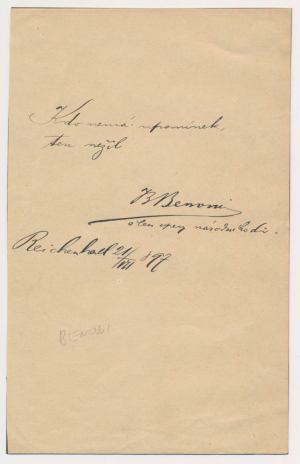 Kdo nemá upomínek,
ten nežil
B Benoni
člen opery národního div.
Reichenhall 21/VIII 897
BENONI